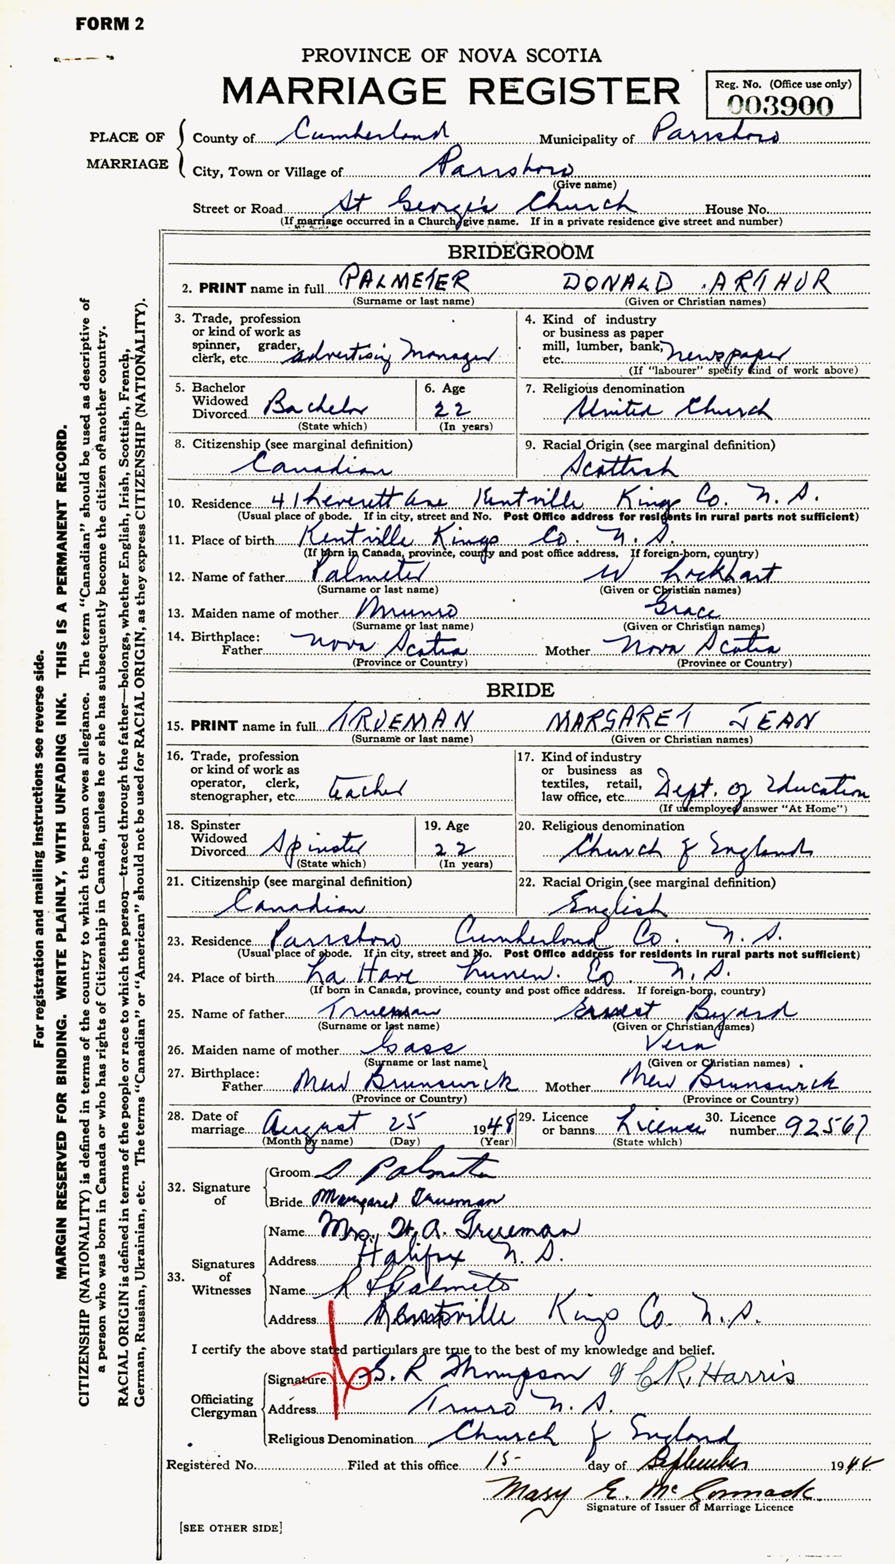 FORM 2
PROVINCE OF NOVA SCOTIA
MARRIAGE REGISTER
Reg. No. (Office use only)
003900
PLACE OF MARRIAGE
County of Cumberland Municipality of Parrsboro
City, Town or Village of Parrsboro
(Give name)
Street or Road St George's Church House No.
(If marriage occurred in a Church give name. If in a private residence give street and number)
BRIDEGROOM
2. PRINT name in full PALMETER DONALD ARTHUR
(Surname or last name) (Given or Christian names)
3. Trade, profession
or kind of work as
spinner, grader,
clerk, etc. advertising Manager
4. Kind of industry
or business as paper
mill, lumber, bank,
etc. newspaper
(If "labourer" specify kind of work above)
5. Bachelor
Widowed
Divorced Bachelor
(State which)
6. Age
22
(In years)
7. Religious denomination
United Church
8. Citizenship (see marginal definition)
Canadian
9. Racial Origin (see marginal definition)
Scottish
10. Residence 41 Leverett Ave Kentville Kings Co. N. S.
(Usual place of abode. If in city, street and No. Post Office address for residents in rural parts not sufficient)
11. Place of birth Kentville Kings Co. N. S.
(If born in Canada, province, county and post office address. If foreign-born, country)
12. Name of father Palmeter W Lockhart
(Surname or last name) (Given or Christian names)
13. Maiden name of mother Munro Grace
(Surname or last name) (Given or Christian names)
14. Birthplace:
Father Nova Scotia Mother Nova Scotia
(Province or Country) (Province or Country)
BRIDE
15. PRINT name in full TRUEMAN MARGARET JEAN
(Surname or last name) (Given or Christian names)
16. Trade, profession
or kind of work as
operator, clerk,
stenographer, etc. teacher
17. Kind of industry
or business as
textiles, retail,
law office, etc. Dept. of Education
(If unemployed answer "At Home")
18. Spinster
Widowed
Divorced Spinster
(State which)
19. Age
22
(In years)
20. Religious denomination
Church of England
21. Citizenship (see marginal definition)
Canadian
22. Racial Origin (see marginal definition)
English
23. Residence Parrsboro Cumberland Co. N. S.
(Usual place of abode. If in city, street and No. Post Office address for residents in rural parts not sufficient)
24. Place of birth La Have Lunen. Co N. S.
(If born in Canada, province, county and post office address. If foreign-born, country)
25. Name of father Trueman Ernest Byard
(Surname or last name) (Given or Christian names)
26. Maiden name of mother Gass Vera
(Surname or last name) (Given or Christian names)
27. Birthplace:
Father New Brunswick Mother New Brunswick
(Province or Country) (Province or Country)
28. Date of
marriage August 25 1948
(Month by name) (Day) (Year)
29. Licence
or banns License
(State which)
30. Licence
number 92567
32. Signature of
Groom D Palmeter
Bride Margaret Trueman
33. Signatures of Witnesses
Name Mrs. H. A. Trueman
Address Halifax N. S.
Name R L Palmeter
Address Kentville Kings Co. N. S.
I certify the above stated particulars are true to the best of my knowledge and belief.
Officiating Clergyman
Signature G. R Thompson & C. R. Harris
Address Truro N. S.
Religious Denomination Church of England
Registered No. Filed at this office 15 day of September 1948
Mary E. McCormack
Signature of Issuer of Marriage Licence
[SEE OTHER SIDE]
For registration and mailing instructions see reverse side.
MARGIN RESERVED FOR BINDING. WRITE PLAINLY, WITH UNFADING INK. THIS IS A PERMANENT RECORD.
CITIZENSHIP (NATIONALITY) is defined in terms of the country to which the person owes allegiance. The term "Canadian" should be used as descriptive of
a person who was born in Canada or who has rights of Citizenship in Canada, unless he or she has subsequently become the citizen of another country.
RACIAL ORIGIN is defined in terms of the people or race to which the person—traced through the father—belongs, whether English, Irish, Scottish, French,
German, Russian, Ukrainian, etc. The terms "Canadian" or "American" should not be used for RACIAL ORIGIN, as they express CITIZENSHIP (NATIONALITY).